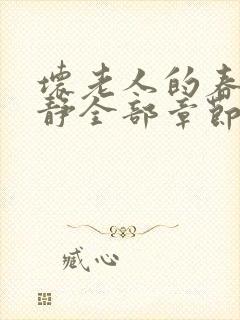 坏老人的春
静全部章节
臧心